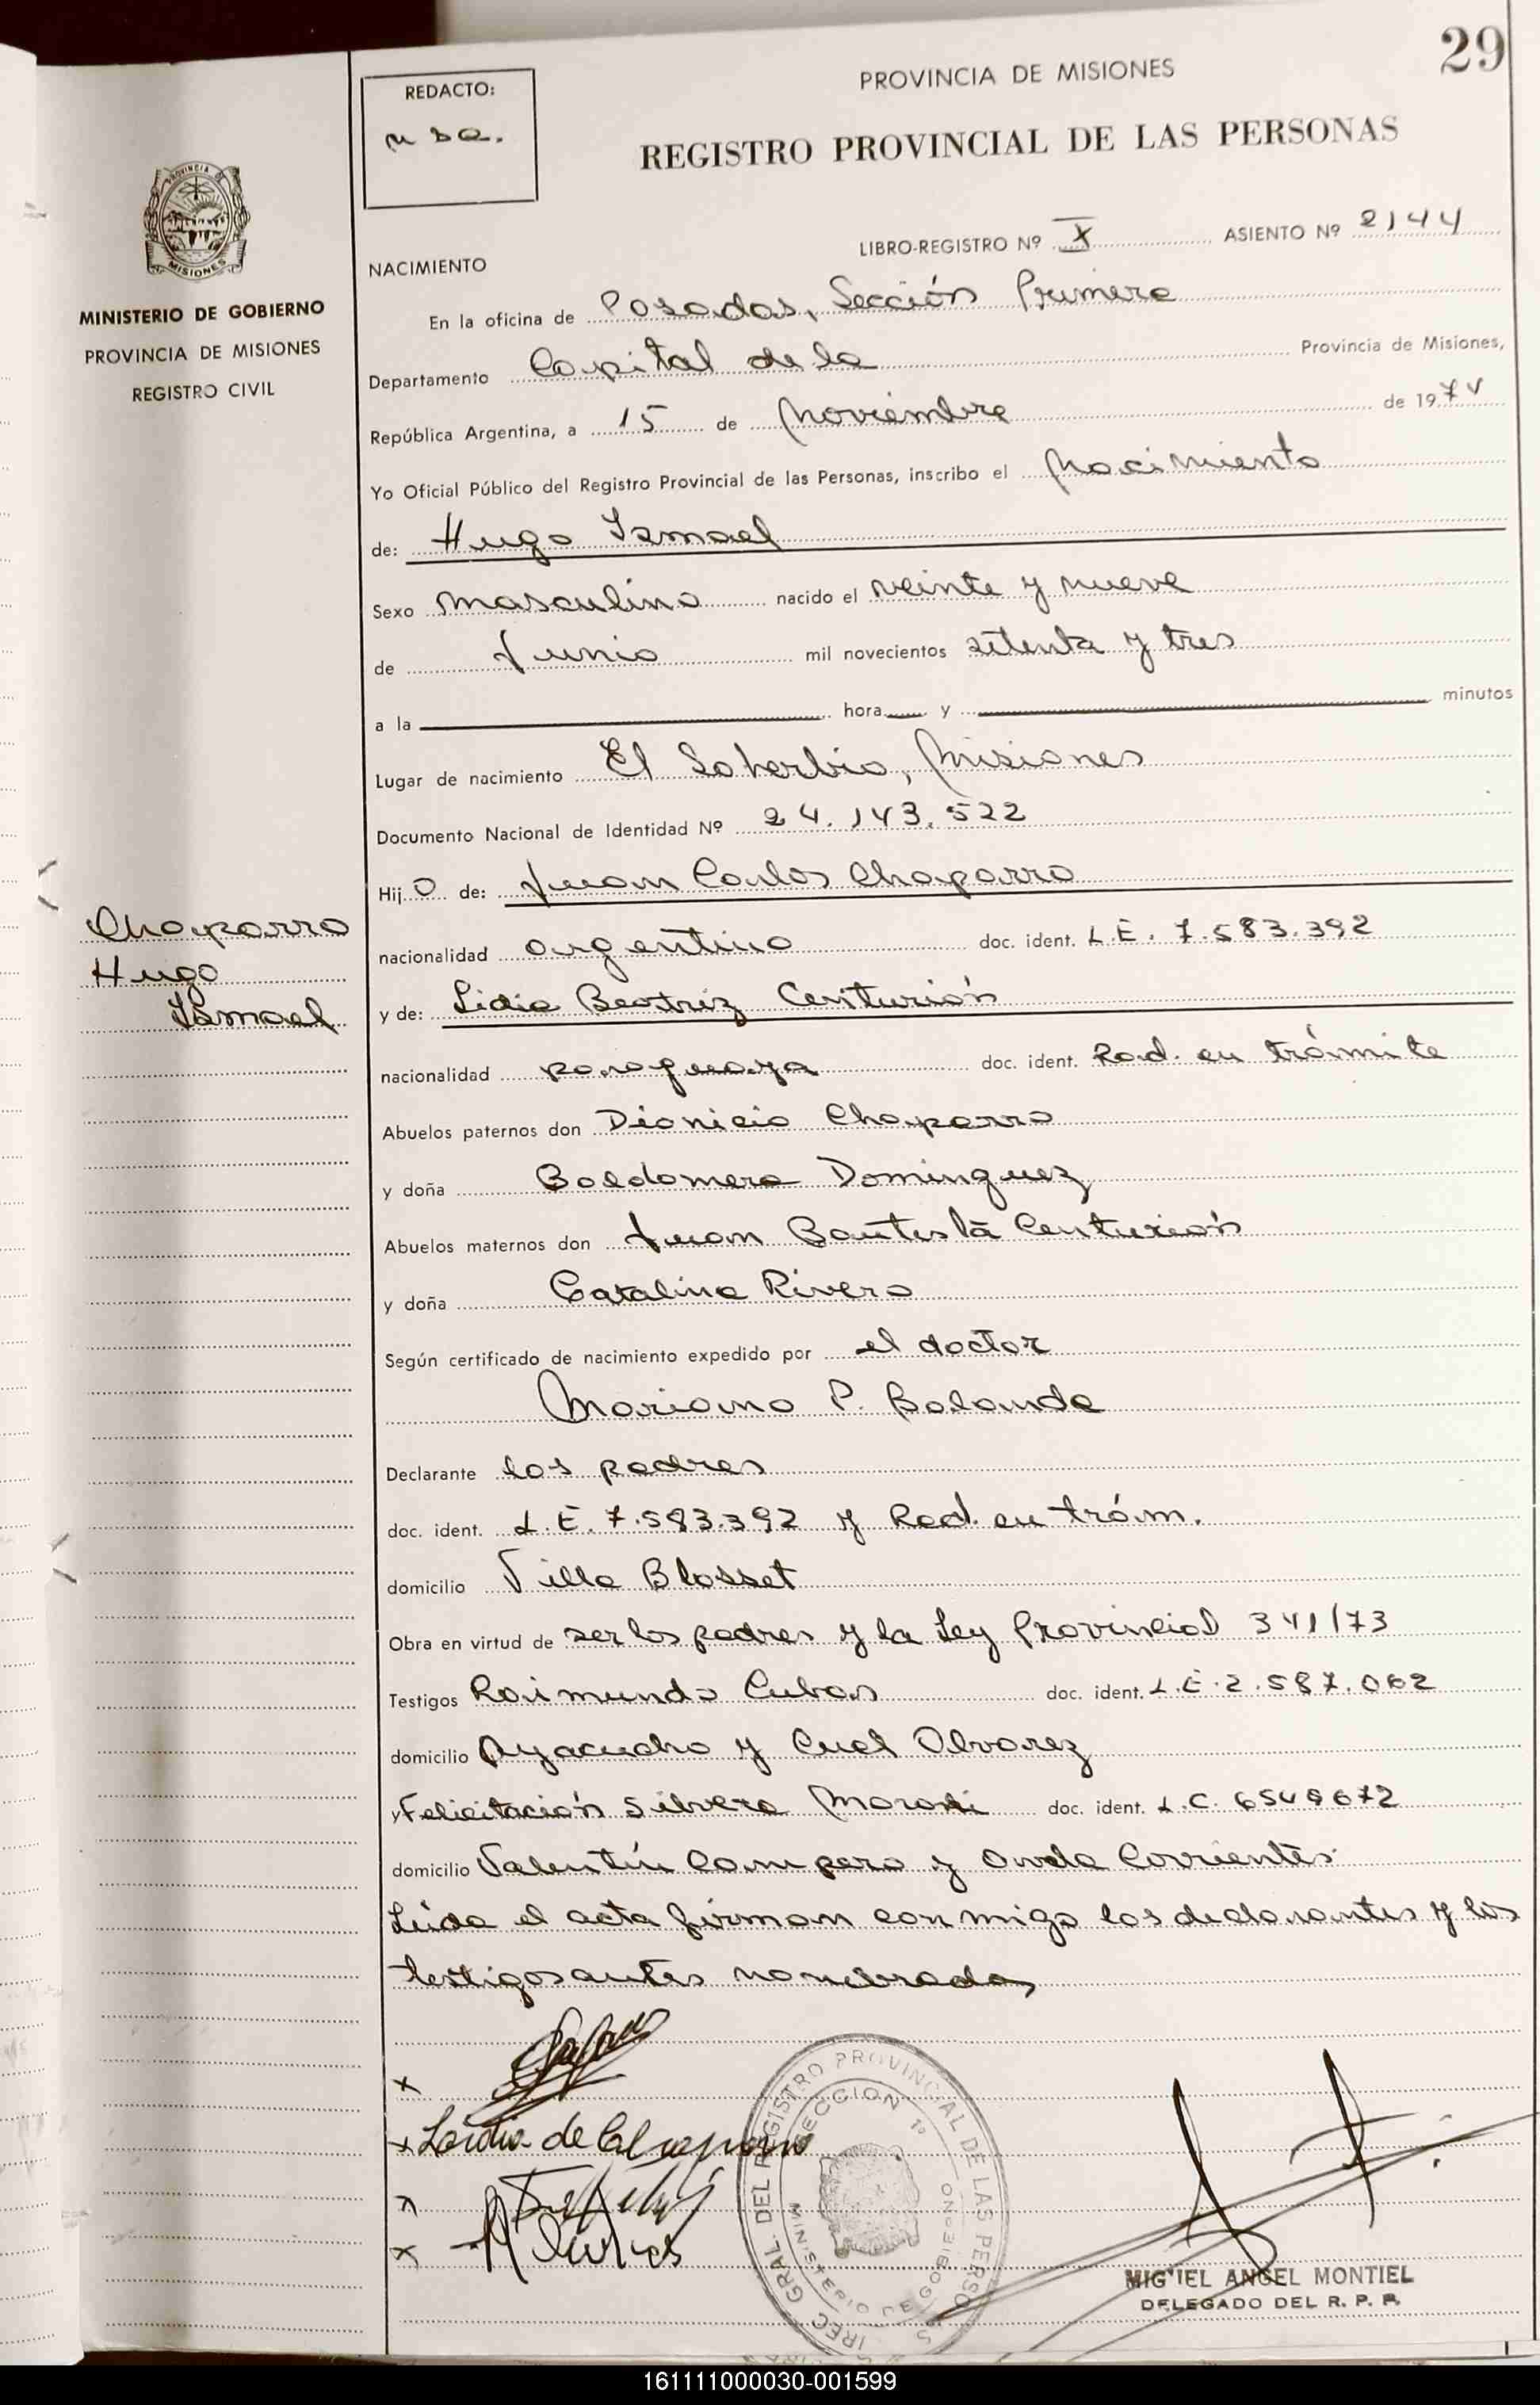 29
REDACTO:
PROVINCIA DE MISIONES
REGISTRO PROVINCIAL DE LAS PERSONAS
PROVINCIA DE
MISIONES
MINISTERIO DE GOBIERNO
PROVINCIA DE MISIONES
REGISTRO CIVIL
LIBRO-REGISTRO Nº X ASIENTO Nº 2144
NACIMIENTO
En la oficina de Posadas, Sección Primera
Departamento Capital de la Provincia de Misiones,
República Argentina, a 15 de Noviembre de 197
Yo Oficial Público del Registro Provincial de las Personas, inscribo el Nacimiento
de: Hugo Ismael
Sexo masculino nacido el veinte y nueve
de Junio mil novecientos setenta y tres
a la hora y minutos
Lugar de nacimiento El Soberbio, Misiones
Documento Nacional de Identidad Nº 24.143.522
Hij o de: Juan Carlos Chaparro
nacionalidad argentino doc. ident. L.E. 7.583.392
Chaparro
Hugo
Ismael
y de: Lidia Beatriz Centurión
nacionalidad paraguaya doc. ident. Rad. en trámite
Abuelos paternos don Dionicio Chaparro
y doña Baldomera Dominguez
Abuelos maternos don Juan Bautista Centurión
y doña Catalina Rivero
Según certificado de nacimiento expedido por el doctor
Mariano P. Balanda
Declarante los padres
doc. ident. L.E. 7.583.392 y Rad. en trám.
domicilio Villa Blosset
Obra en virtud de ser los padres y la Ley Provincial 341/73
Testigos Raimundo Cubas doc. ident. L.E. 2.587.062
domicilio Ayacucho y Cnel Alvarez
y Felicitación Silvera doc. ident. L.C. 6549672
domicilio Valentín y Avda Corrientes
Leída el acta firman conmigo los declarantes y los
testigos antes nombrados
x
x de Chaparro
x
x
DIREC. GRAL. DEL REGISTRO PROVINCIAL DE LAS PERSONAS
SECCION 1º
MINISTERIO DE GOBIERNO
MIGUEL ANGEL MONTIEL
DELEGADO DEL R. P. P.
161111000030-001599